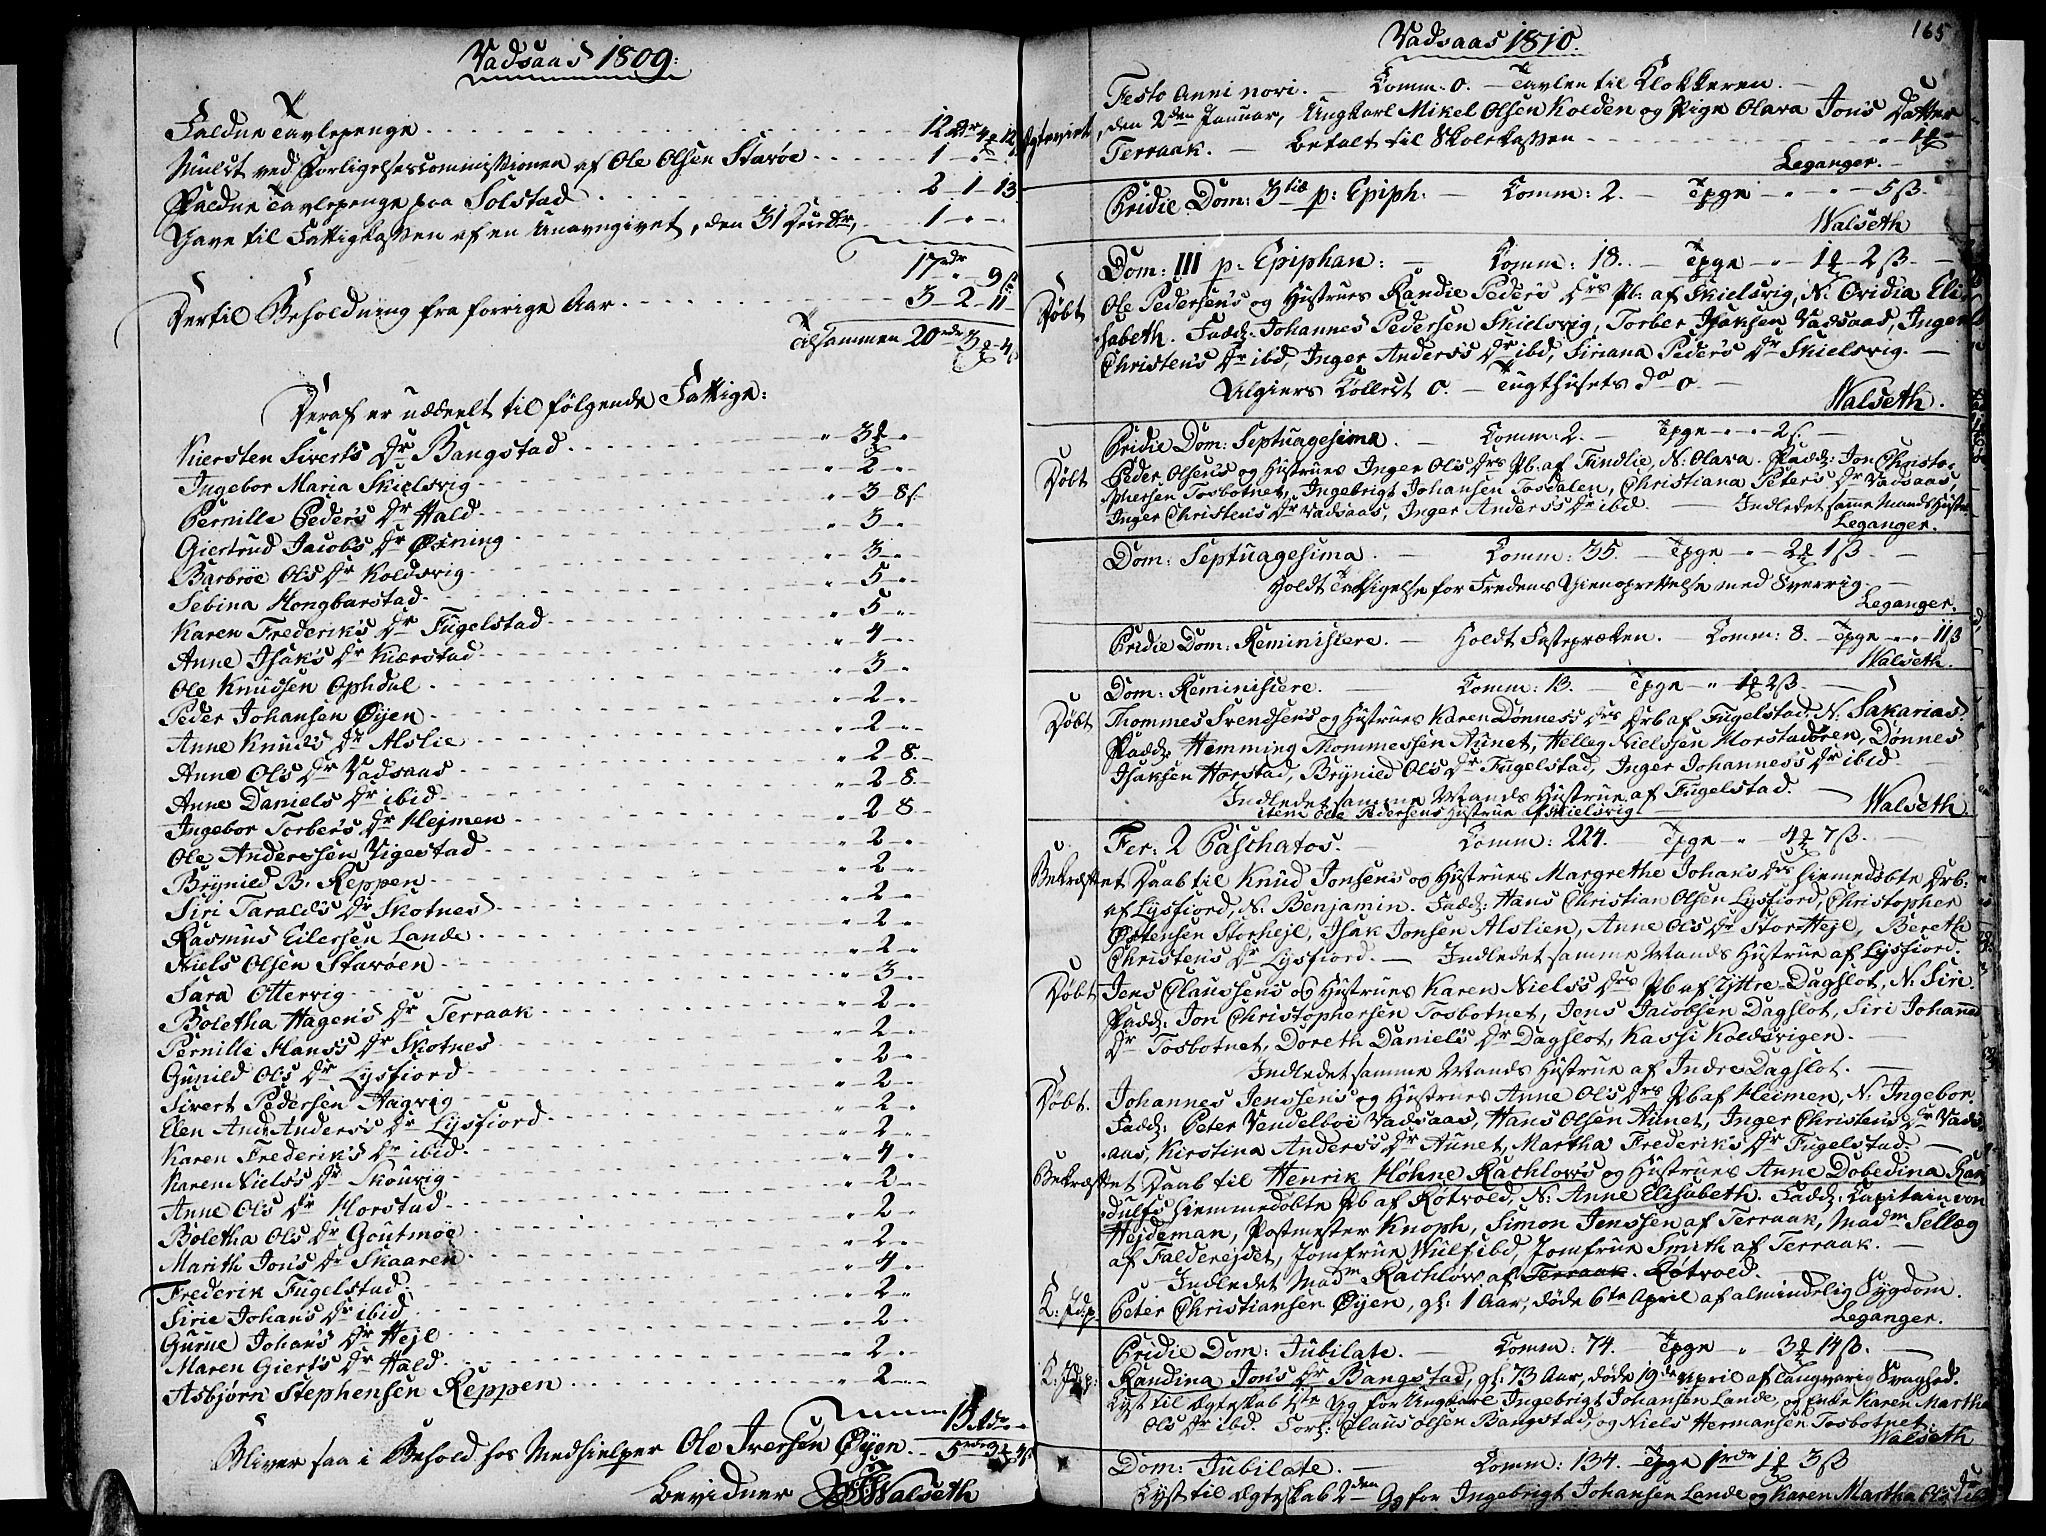 Vadsaas 1809.
Faldne Tavlepenge 12 rdr 4 12
Mulct ved Forligelsescommissionen af Ole Olsen Starøe 1
Faldne Tavlepenge paa Solstad 2 - 1 - 13
Gave til Fattigkassen af en Unavngivet, den 31 1 - -
17 rdr - 9
Dertil Beholdning fra forrige Aar 3 - 2 - 11
Tilsammen 20 rdr 3 - 4
Deraf er uddeelt til følgende Fattige:
Kiersten Siverts Dr Bangstad 3
Ingebor Maria Skielsvig 2
Pernille Peders Dr Hald 3 - 8
Giertrud Jacobs Dr Øxning 3
Barbroe Ols Dr Koldsvig 3
Sebina Hongbarstad 5
Karen Frederik's Dr Fugelstad 5
Anne Isak's Dr Kiærstad 4
Ole Knudsen Ophdal 3
Peder Johansen Øyen 2
Anne Knuds Dr Alslie 2
Anne Ols Dr Vadsaas 2 - 8
Anne Daniels Dr ibid 2 - 8
Ingebor Torber's Dr Hejmen 2 - 8
Ole Anderssen Vigestad 2
Brynild B. Reppen 2
Siri Taralds Dr Skotnes 2
Rasmus Eilersen Lande 2
Niels Olsen Starøen 2
Sara Ottervig 3
Boletha Hagens Dr Terraak 2
Pernille Hans's Dr Skotnes 2
Gunild Ols Dr Lysfiord 2
Sivert Pedersen Aagvig 2
Elen And: Anders's Dr Lysfiord 2
Karen Frederik's Dr ibid 2
Karen Niels's Dr Skouvig 4
Anne Ols Dr Horstad 2
Boletha Ols Dr Goutmoe 2
Marith Jons Dr Skaaren 2
Frederik Fugelstad 4
Sirie Johans Dr ibid 2
Gurue Johans Dr Hejl 2
Maren Gierts Dr Hald 2
Asbjørn Stephensen Reppen 2
15 rdr
Bliver saa i Behold hos Medhielper Ole Iversen Øyen 5 rdr 3 - 4
bevidner Walseth
Vadsaas 1810. 165
Festo Anni novi. - Comm. 0. - Tavlen til Klokkeren. -
Egteviet, den 2den Januar, Ungkarl Mikel Olsen Kolden og Pige Olava Jon's Datter
Terraak. - betalt til Skolekassen 1
Leganger.
Pridie Dom: 3tiæ p: Epiph. - Comm: 2. Tpge - 5 ß.
Walseth
Dom: III p: Epiphan: - Comm: 18. - Tpge - 1 - 2 ß -
Døbt Ole Pedersen's og Hustrues Randie Peder's Drs Pb: af Skielsvig, N: Ovidia Eli-
sabeth. Fadd: Johannes Pedersen Skielsvig, Torber Isaksen Vadsaas, Inger
Christens Dr ibid, Inger Anders's Dr ibid, Siriana Peder's Dr Skielsvig. -
Algiers Collect 0. - Tugthusets do 0 -
Walseth.
Pridie Dom: Septuagesima. - Comm: 2. - Tpge - 2 ß. -
Døbt Peder Olsen's og Hustrues Inger Ols Drs Pb: af Tindlie, N: Olava. Fadd: Jon Christo-
phersen Tosbotnet, Ingebrigt Johansen Tosdalen, Christiana Peter's Dr Vadsaas,
Inger Christens Dr Vadsaas, Inger Anders's Dr ibid. - Indledet samme Mands Hustr.
Leganger.
Dom: Septuagesima. - Comm: 35. - Tpge - 2 1 ß -
Holdt Taksigelse for Fredens Gienoprettelse med Sverrig. -
Leganger.
Pridie Dom: Reminiscere. - Holdt Fasteprædken. - Comm: 8. - Tpge - 11 ß
Walseth.
Dom: Reminiscere. - Comm: 13. - Tpge - 1 2 ß -
Døbt Thommes Svendsens og Hustrues Karen Dønnes's Drs Drb af Fugelstad, N: Sakarias.
Fadd: Hemming Thommessen Aunet, Helleg Nielssen Horstadøren, Dønnes
Isaksen Horstad, Brynild Ols Dr Fugelstad, Inger Johannes's Dr ibid -
Indledet samme Mands Hustrue af Fugelstad. -
item Ole Pedersens Hustrue af Skielsvig. Walseth.
Fer: 2 Paschatos. - Comm: 224. - Tpge - 4 7 ß. -
Bekræftet Daab til Knud Jonsen's og Hustrues Margrethe Johans Drs hiemmedøbte Drb:
af Lysfiord, N: Benjamin. Fadd: Hans Christian Olsen Lysfiord, Christopher
Østensen Storhejl, Isak Jonsen Alslien, Anne Ols Dr Stor-Hejl, Bereth
Christens Dr Lysfiord. - Indledet samme Mands Hustrue af Lysfiord.
Døbt Jens Claussens og Hustrues Karen Niels's Drs Pb af Yttre-Dagslot, N: Siri.
Fadd: Jon Christophersen Tosbotnet, Jens Jacobsen Dagslot, Siri Johans
Dr Tosbotnet, Doreth Daniel's Dr Dagslot, Kassi Koldsvigen. -
Indledet samme Mands Hustrue af Indre Dagslot. -
Døbt. Johannes Jenssens og Hustrues Anne Ols Drs Pb af Heimen, N: Ingebor.
Fadd: Peter Vendelboe Vadsaas, Hans Olsen Aunet, Inger Christens Dr Vads-
aas, Kirstina Anders's Dr Aunet, Martha Frederik's Dr Fugelstad. -
Bekræftet Daab til Henrik Høhne Rachlow's og Hustrues Anne Dobedina Ran-
dulfs hiemmedøbte Pb af Røtvold, N: Anne Elisabeth. Fadd: Capitain von
Hejdeman, Postmester Knoph, Simon Jenssen af Terraak, Madm Sellæg
af Falderejdet, Jomfrue Wulf ibd, Jomfrue Smith af Terraak. -
Indledet Madm Rachlow af Terraak. Røtvold. -
K: Jdp: Peter Christiansen Øyen, gl: 1 Aar, døde 6te April af almindelig Sygdom.
Leganger.
Pridie Dom: Jubilate. - Comm: 74. - Tpge - 3 14 ß. -
K: Jdp: Randina Jon's Dr Bangstad, gl: 73 Aar, døde 19de April af langvarig Svaghed.
Lyst til Ægteskab 1ste Gg for Ungkarl Ingebrigt Johansen Lande, og Enke Karen Martha
Ols Dr ibd. Forl: Claus Olsen Bangstad, og Niels Hermansen Tosbotnet.
Walseth
Dom: Jubilate. - Comm: 134. Tpge 1 rdr 1 3 ß
Lyst til Ægteskab 2den Gg for Ingebrigt Johansen Lande og Karen Martha Ols Dr